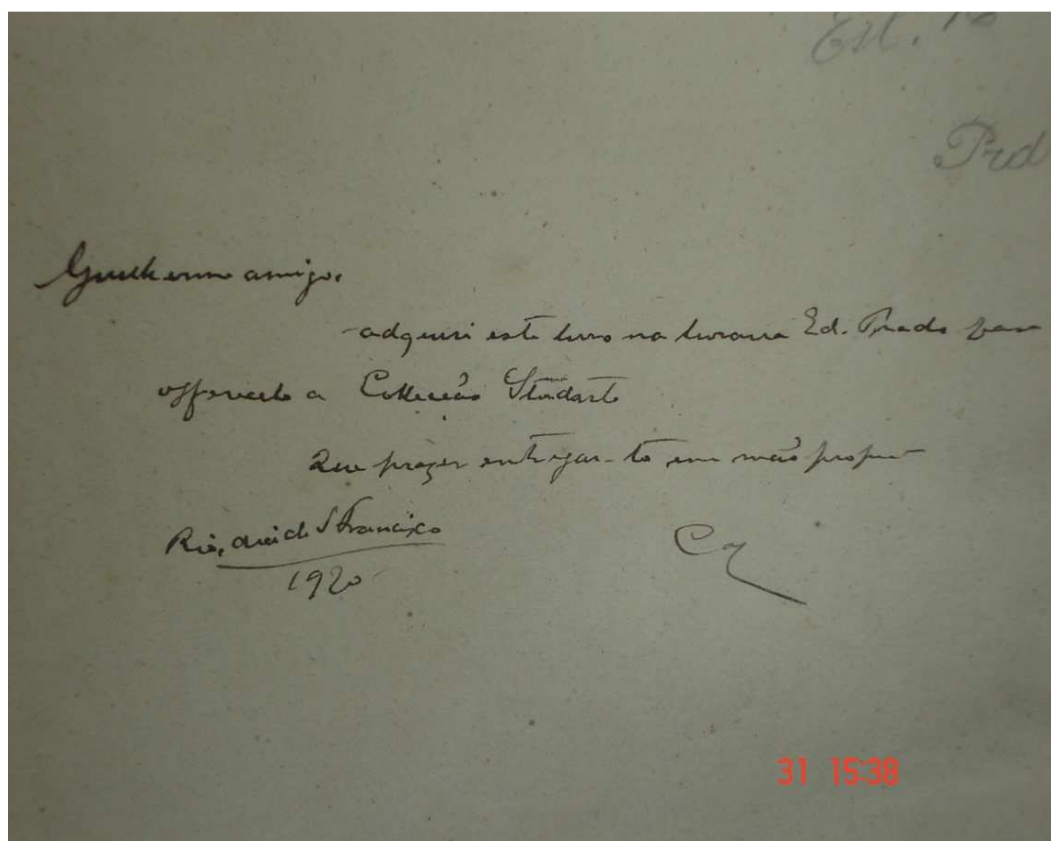 Est. 18
Prd
Guilherme amigo.
adquiri este livro na livraria Ed. Prado para
offerecel-o a Collecção Studart
Que prazer entregar-to em mão propria
Rio, dia de S Francisco
1920
31 15:38